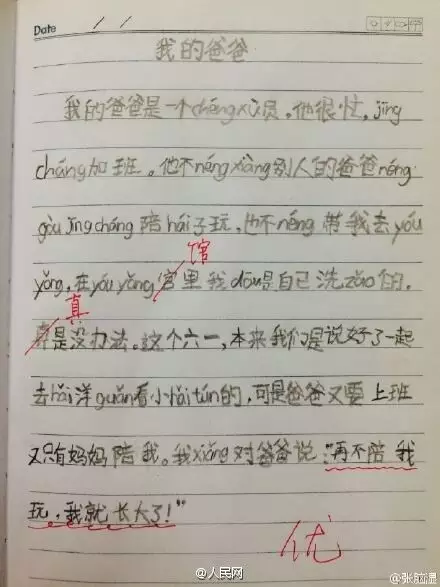 Date / /
我的爸爸
我的爸爸是一个chéngxù员。他很忙，jīng
cháng加班。他不néngxiàng别人的爸爸néng
gòu jīngcháng陪hái子玩，也不néng带我去yóu
馆
yǒng，在yóuyǒng官里我dōu是自己洗zǎo的。
真
真是没办法。这个六一，本来我们是说好了一起
去hǎi洋guǎn看小hǎitún的，可是爸爸又要上班
又只有妈妈陪我。我xiǎng对爸爸说："再不陪我
玩，我就长大了！"
优
@人民网
@张脑湿